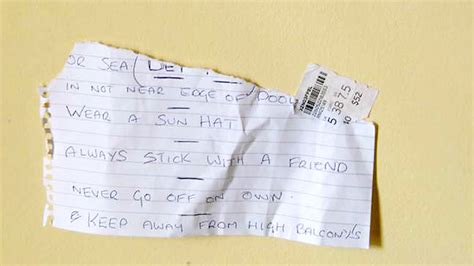 OR SEA (LET
IN NOT NEAR EDGE OF POOL
WEAR A SUN HAT
ALWAYS STICK WITH A FRIEND
NEVER GO OFF ON OWN.
& KEEP AWAY FROM HIGH BALCONY'S
3875
$52